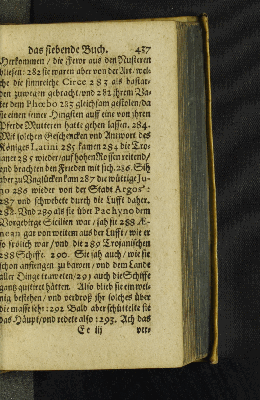 das siebende Buch. 437
Herkommen / die Fewr aus den Nusteren
bliesen: 282 sie waren aber von der Art / wel-
che die sinnreiche Circe 283 als bastar-
den zuwegen gebracht / und 282 ihrem Va-
ter dem Phœbo 283 gleichsam gestolen / da
sie einen seiner Hingsten auff eine von ihren
Pferde Mutteren hatte gehen lassen. 284.
Mit solchen Geschencken und Antwort des
Königes Latini 285 kamen 284 die Tro-
janer 285 wieder / auf hohen Rossen reitend /
und brachten den Frieden mit sich. 286. Sih
aber zu Unglücken kam 287 die wütige Ju-
no 286 wieder von der Stadt Argos:
287 und schwebete durch die Lufft daher.
288. Und 289 als sie über Pachyno dem
Vorgebirge Sicilien war / sah sie 288 Æ-
nean gar von weitem aus der Lufft / wie er
so frölich war / und die 289 Trojanischen
288 Schiffe. 290. Sie sah auch / wie sie
schon anfiengen zu bawen / und dem Lande
aller Dinge traweten / 291 auch die Schiffe
gantz quittiret hätten. Also blieb sie ein we-
nig bestehen / und verdroß ihr solches über
die masse sehr: 292 Bald aber schüttelte sie
das Häupt / und redete also: 293. Ach das
Ee iij ver-